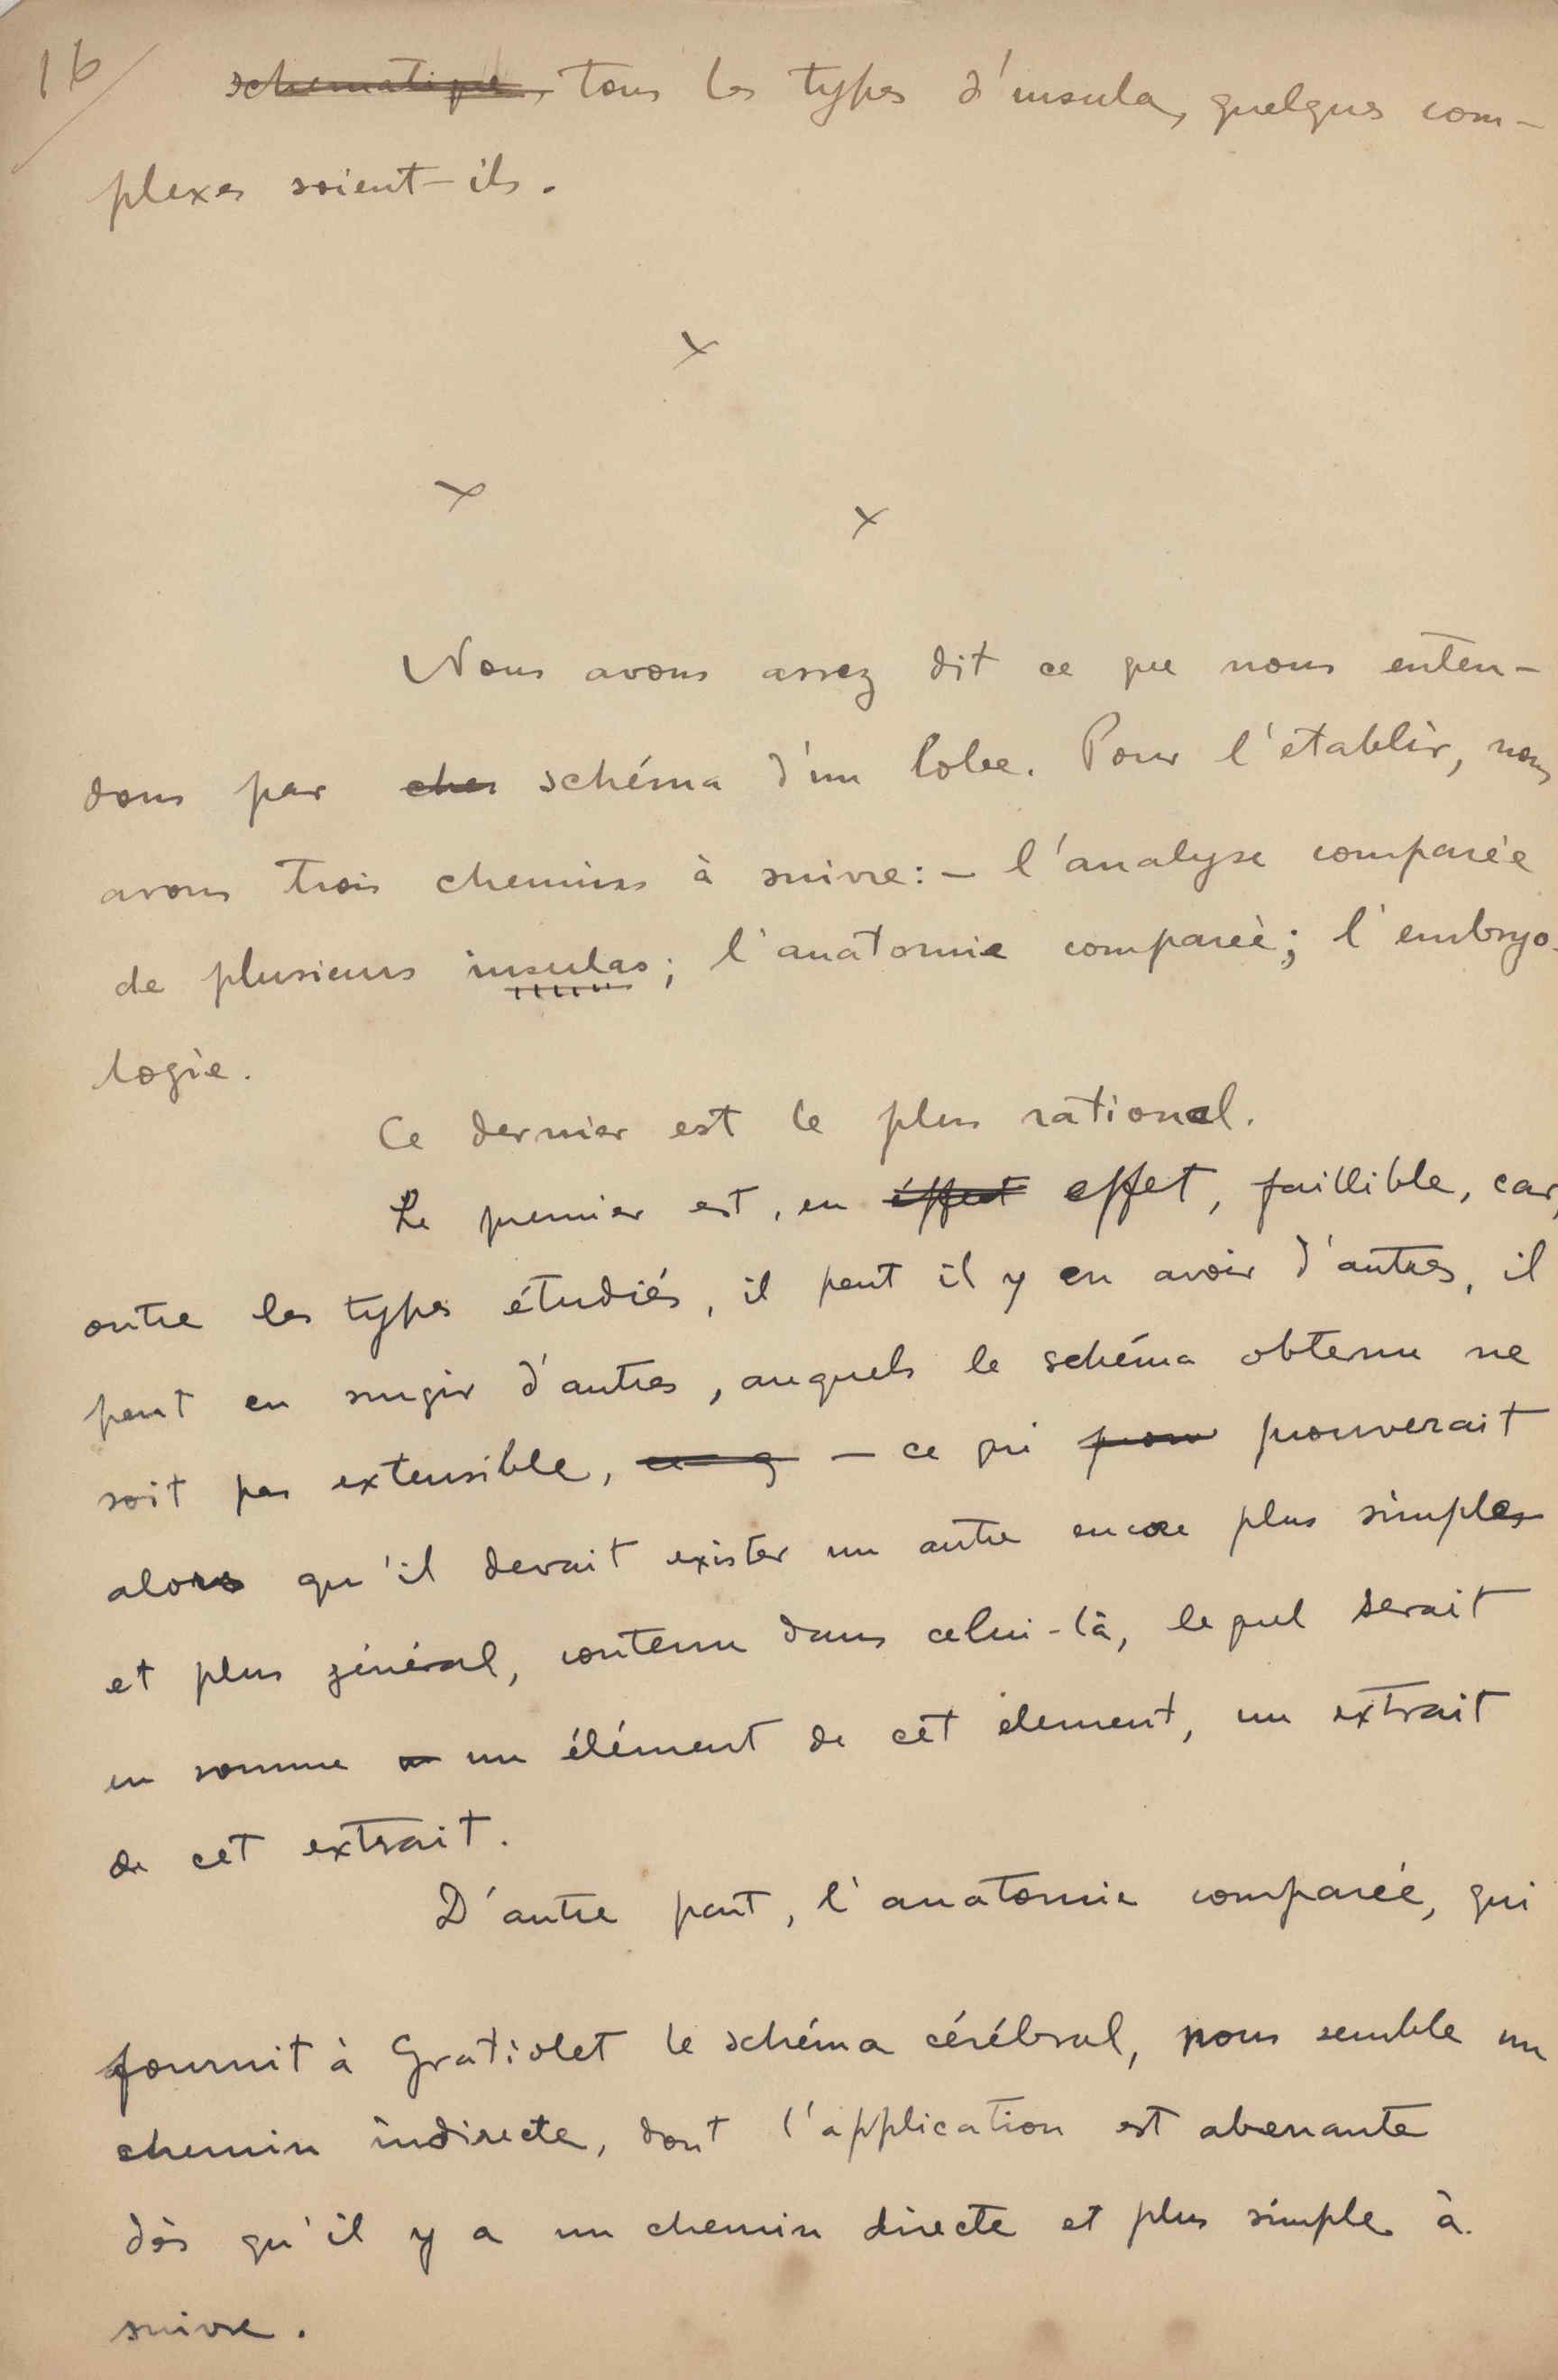 16/
schematique, tous les types d'insula, quelques com-
plexes soient-ils.
x
x x
Nous avons assez dit ce que nous enten-
dons par ches schéma d'un lobe. Pour l'etablir, nous
avons trois chemins à suivre: - l'analyse comparée
de plusieurs insulas; l'anatomie comparée; l'embryo-
logie.
Ce dernier est le plus rational.
Le premier est, en éffect effet, faillible, car,
outre les types étudiés, il peut il y en avoir d'autres, il
peut en surgir d'autres, auquels le schéma obtenu ne
soit pas extensible, - ce qui prou prouverait
alors qu'il devait exister un autre encore plus simple
et plus général, contenu dans celui-là, lequel serait
en somme un élément de cet element, un extrait
de cet extrait.
D'autre part, l'anatomie comparée, qui
fournit à Gratiolet le schéma cérébral, nous semble un
chemin indirecte, dont l'application est aberrante
dès qu'il y a un chemin directe et plus simple à
suivre.